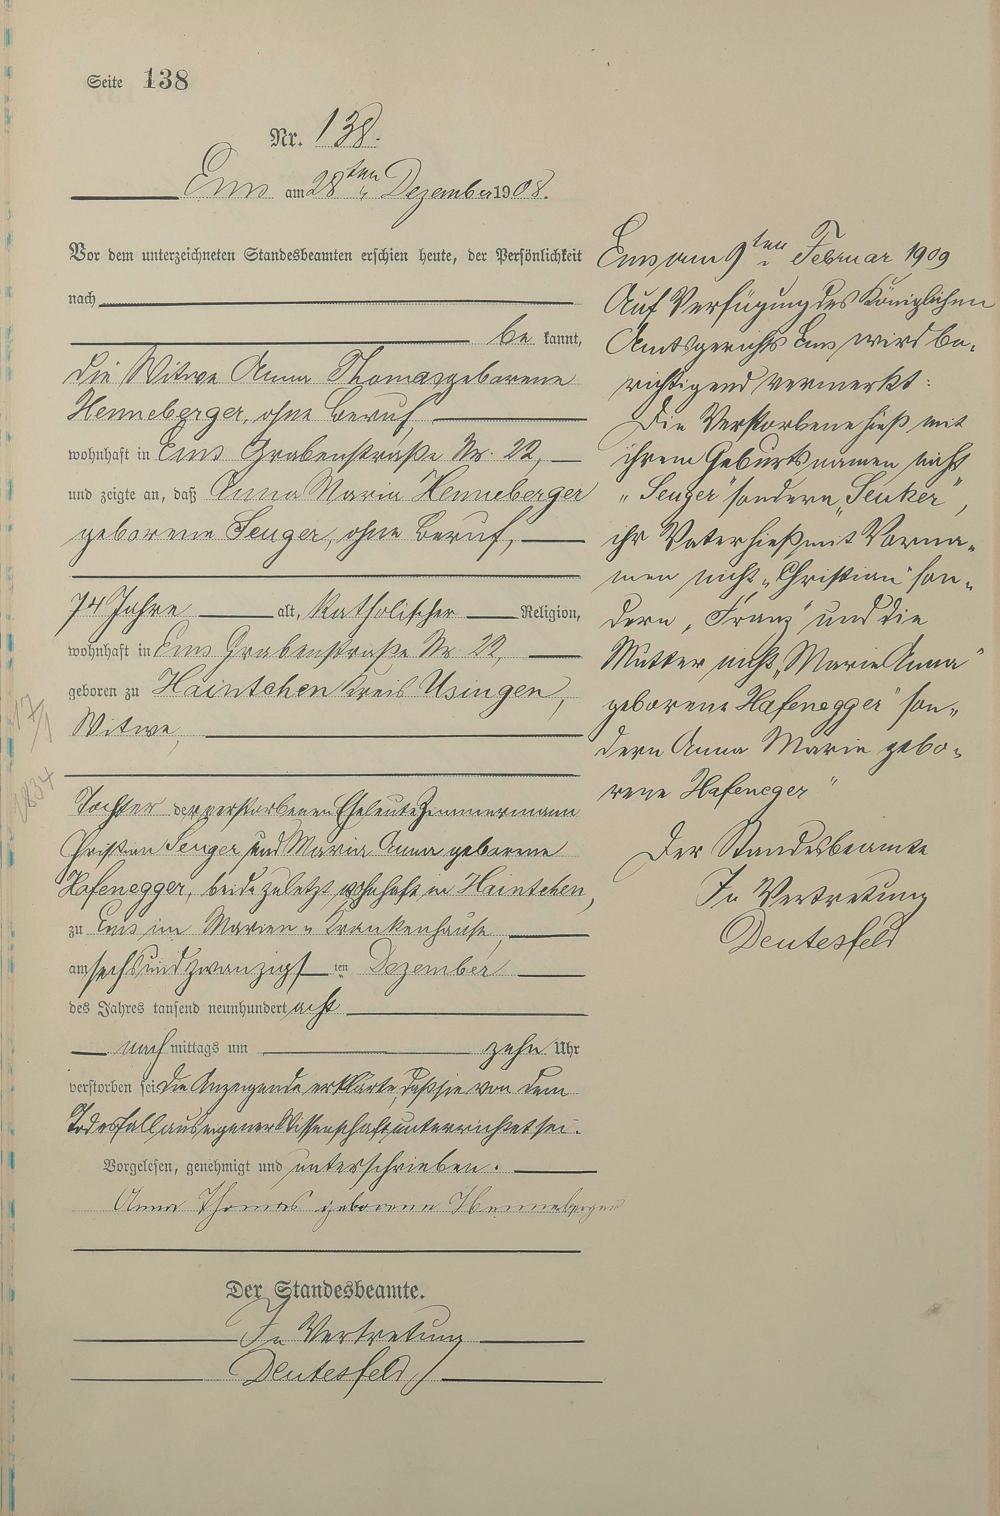 Seite 138
Nr. 138.
Ems am 28ten Dezember 1908.
Vor dem unterzeichneten Standesbeamten erschien heute, der Persönlichkeit
nach
be kannt,
die Witwe Anna Thomas geborene
Henneberger, ohne Beruf,
wohnhaft in Ems Grabenstraße Nr. 22,
und zeigte an, daß Anna Maria Henneberger
geborene Senger, ohne Beruf,
74 Jahre alt, katholischer Religion,
wohnhaft in Ems Grabenstraße Nr 22,
geboren zu Haintchen Kreis Usingen,
Witwe,
17/1
1834
Tochter der verstorbenen Eheleute Zimmermann
Christian Senger und Maria Anna geborene
Hafenegger, beide zuletzt wohnhaft in Haintchen,
zu Ems im Marien-Krankenhause,
am sechsundzwanzigsten Dezember
des Jahres tausend neunhundert acht
nachmittags um zehn Uhr
verstorben sei. Die Anzeigende erklärte, daß sie von dem
Todesfall aus eigener Wissenschaft unterrichtet sei.
Vorgelesen, genehmigt und unterschrieben.
Anna Thomas geborene Henneberger
Der Standesbeamte.
In Vertretung
Deutesfeld
Ems am 9ten Februar 1909
Auf Verfügung des Königlichen
Amtsgerichts Ems wird be-
richtigend vermerkt:
Die Verstorbene hieß mit
ihrem Geburtsnamen nicht
"Senger" sondern "Seuker",
ihr Vater hieß mit Vorna-
men nicht "Christian" son-
dern "Franz" und die
Mutter nicht "Maria Anna
geborene Hafenegger" son-
dern Anna Maria gebo-
rene Hafeneger"
Der Standesbeamte
In Vertretung
Deutesfeld